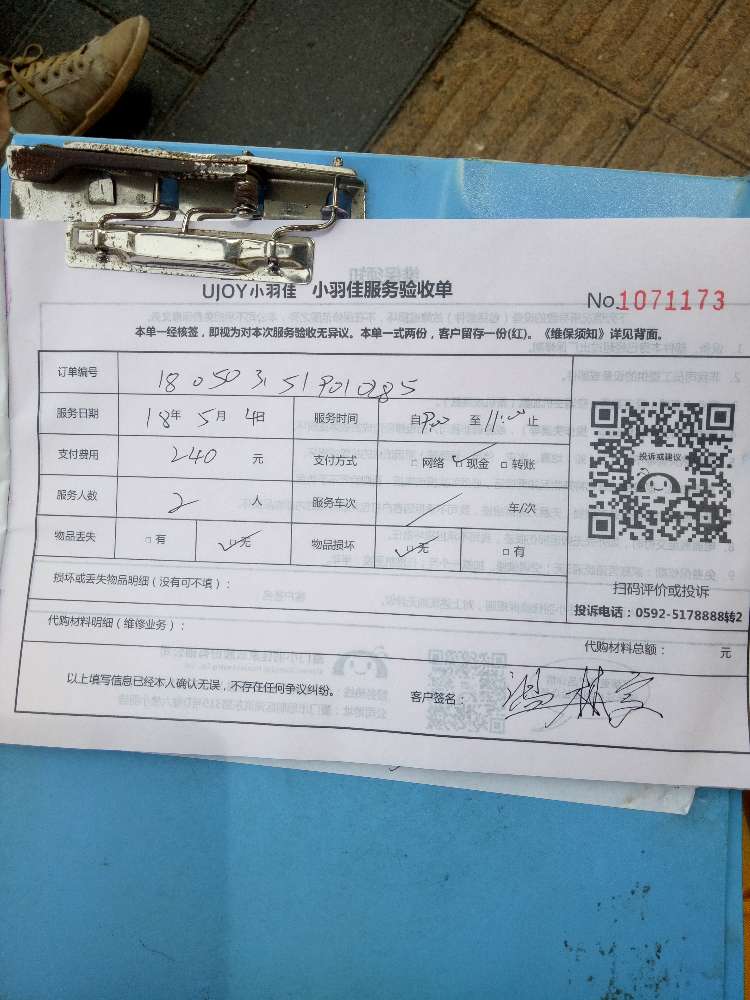 UJOY小羽佳 小羽佳服务验收单
No.1071173
本单一经核签，即视为对本次服务验收无异议。本单一式两份，客户留存一份(红)。《维保须知》详见背面。
订单编号 1805031519010285
服务日期 18年 5月 4日 服务时间 自9:00 至11:00止
支付费用 240 元 支付方式 □网络 ☑现金 □转账
服务人数 2 人 服务车次 / 车/次
物品丢失 □有 ☑无 物品损坏 ☑无 □有
损坏或丢失物品明细（没有可不填）：
投诉或建议
扫码评价或投诉
投诉电话：0592-5178888转2
代购材料明细（维修业务）：
代购材料总额： 元
以上填写信息已经本人确认无误，不存在任何争议纠纷。 客户签名：